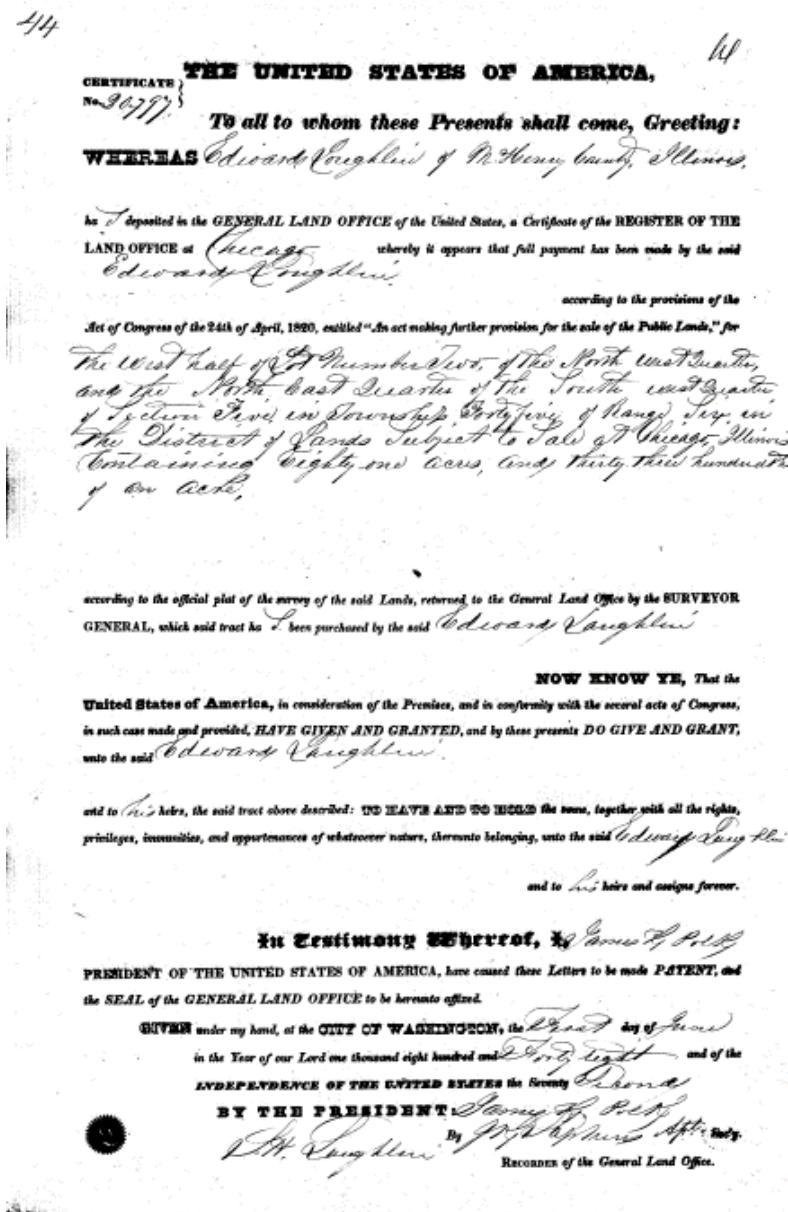 44
CERTIFICATE
No. 30,797
THE UNITED STATES OF AMERICA,
To all to whom these Presents shall come, Greeting:
WHEREAS Edward Loughlin of McHenry County, Illinois,
ha s deposited in the GENERAL LAND OFFICE of the United States, a Certificate of the REGISTER OF THE
LAND OFFICE at Chicago whereby it appears that full payment has been made by the said
Edward Loughlin
according to the provisions of the
Act of Congress of the 24th of April, 1820, entitled "An act making further provision for the sale of the Public Lands," for
the West half of Lot Number Two, of the North West Quarter,
and the North East Quarter of the South West Quarter
of Section Five, in Township Forty five, of Range Six, in
the District of Lands Subject to Sale at Chicago, Illinois
Containing Eighty one acres, and thirty three hundredths
of an acre,
according to the official plat of the survey of the said Lands, returned to the General Land Office by the SURVEYOR
GENERAL, which said tract ha s been purchased by the said Edward Laughlin
NOW KNOW YE, That the
United States of America, in consideration of the Premises, and in conformity with the several acts of Congress,
in such case made and provided, HAVE GIVEN AND GRANTED, and by these presents DO GIVE AND GRANT,
unto the said Edward Laughlin
and to his heirs, the said tract above described: TO HAVE AND TO HOLD the same, together with all the rights,
privileges, immunities, and appurtenances of whatsoever nature, thereunto belonging, unto the said Edward Laughlin
and to his heirs and assigns forever.
In Testimony Whereof, I, James K. Polk
PRESIDENT OF THE UNITED STATES OF AMERICA, have caused these Letters to be made PATENT, and
the SEAL of the GENERAL LAND OFFICE to be hereunto affixed.
GIVEN under my hand, at the CITY OF WASHINGTON, the First day of June
in the Year of our Lord one thousand eight hundred and Forty eight and of the
INDEPENDENCE OF THE UNITED STATES the Seventy Second
BY THE PRESIDENT: James K. Polk
By J. K. Stephens Asst. Sec'y.
S. H. Laughlin
RECORDER of the General Land Office.